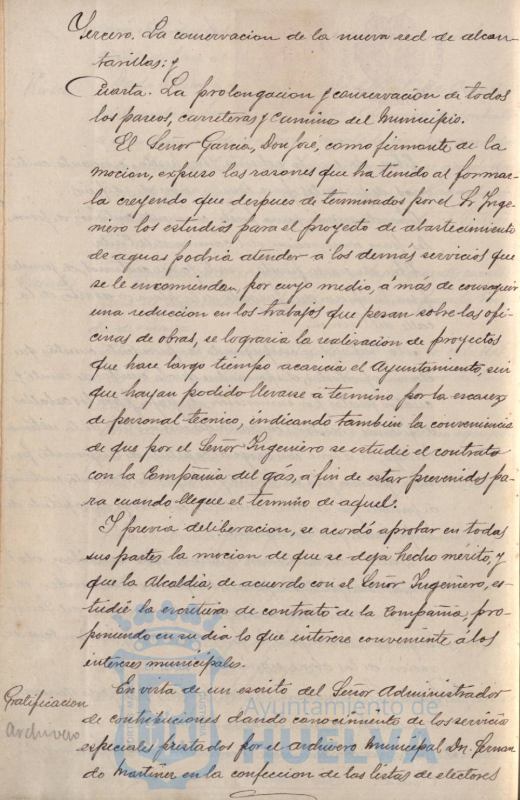 Tercero. La conservacion de la nueva red de alcan-
tarillas: y
Cuarta. La prolongacion y conservacion de todos
los paseos, carreteras y caminos del Municipio.
El Señor Garcia, Don José, como firmante de la
mocion, expuso las razones que ha tenido al formar-
la creyendo que despues de terminados por el Sr Inge-
niero los estudios para el proyecto de abastecimiento
de aguas podria atender a los demás servicios que
se le encomiendan, por cuyo medio, á más de conseguir
una reduccion en los trabajos que pesan sobre las ofi-
cinas de obras, se lograria la realizacion de proyectos
que hace largo tiempo acaricia el Ayuntamiento, sin
que hayan podido llevarse a termino por la escasez
de personal tecnico, indicando tambien la conveniencia
de que por el Señor Ingeniero se estudie el contrato
con la Compañia del gas, a fin de estar prevenidos pa-
ra cuando llegue el termino de aquel.
Y previa deliberacion, se acordó aprobar en todas
sus partes la mocion de que se deja hecho merito, y
que la Alcaldia, de acuerdo con el Señor Ingeniero, es-
tudie la escritura de contrato de la Compañia, pro-
poniendo en su dia lo que interese conveniente á los
intereses municipales.
Gratificacion
Archivero
En vista de un escrito del Señor Administrador
de contribuciones dando conocimiento de los servicios
especiales prestados por el archivero Municipal Dn. Fernan-
do Martinez en la confeccion de las listas de electores
Ayuntamiento de
HUELVA